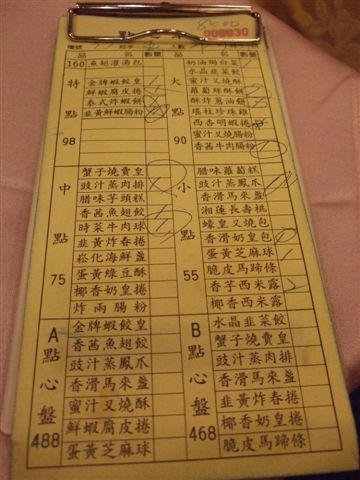 點
8500
000030
品名 數量 品名 數量
160 魚翅灌湯包
特點 98
金牌蝦餃皇
鮮蝦腐皮捲
泰式炸蝦餅
韭黃鮮蝦腸粉
大點 90
奶油焗白菜
水晶韭菜餃
蜜汁叉燒酥
蘿蔔絲酥餅
酥炸蔥油餅
瑤柱珍珠雞
西杏明蝦捲
蜜汁叉腸粉
香茜牛肉腸粉
中點 75
蟹子燒賣皇
豉汁蒸肉排
腊味芋頭糕
香茜魚翅餃
時菜牛肉球
韭黃炸春捲
崧化海鮮盞
蛋黃綠豆酥
椰香奶皇捲
炸兩腸粉
小點 55
腊味蘿蔔糕
豉汁蒸鳳爪
香滑馬來盞
湘蓮長壽桃
蠔皇叉燒包
香滑奶皇包
蛋黃芝麻球
脆皮馬蹄條
香芋西米露 2
椰香西米露
A點心盤 488
金牌蝦餃皇
香茜魚翅餃
豉汁蒸鳳爪
香滑馬來盞
蜜汁叉燒酥
鮮蝦腐皮捲
蛋黃芝麻球
B點心盤 468
水晶韭菜餃
蟹子燒賣皇
豉汁蒸肉排
香滑馬來盞
韭黃炸春捲
椰香奶皇捲
脆皮馬蹄條